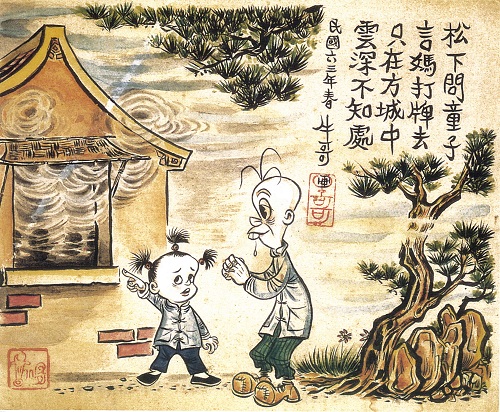 松下問童子
言媽打牌去
只在方城中
雲深不知處
民國六三年春 牛哥